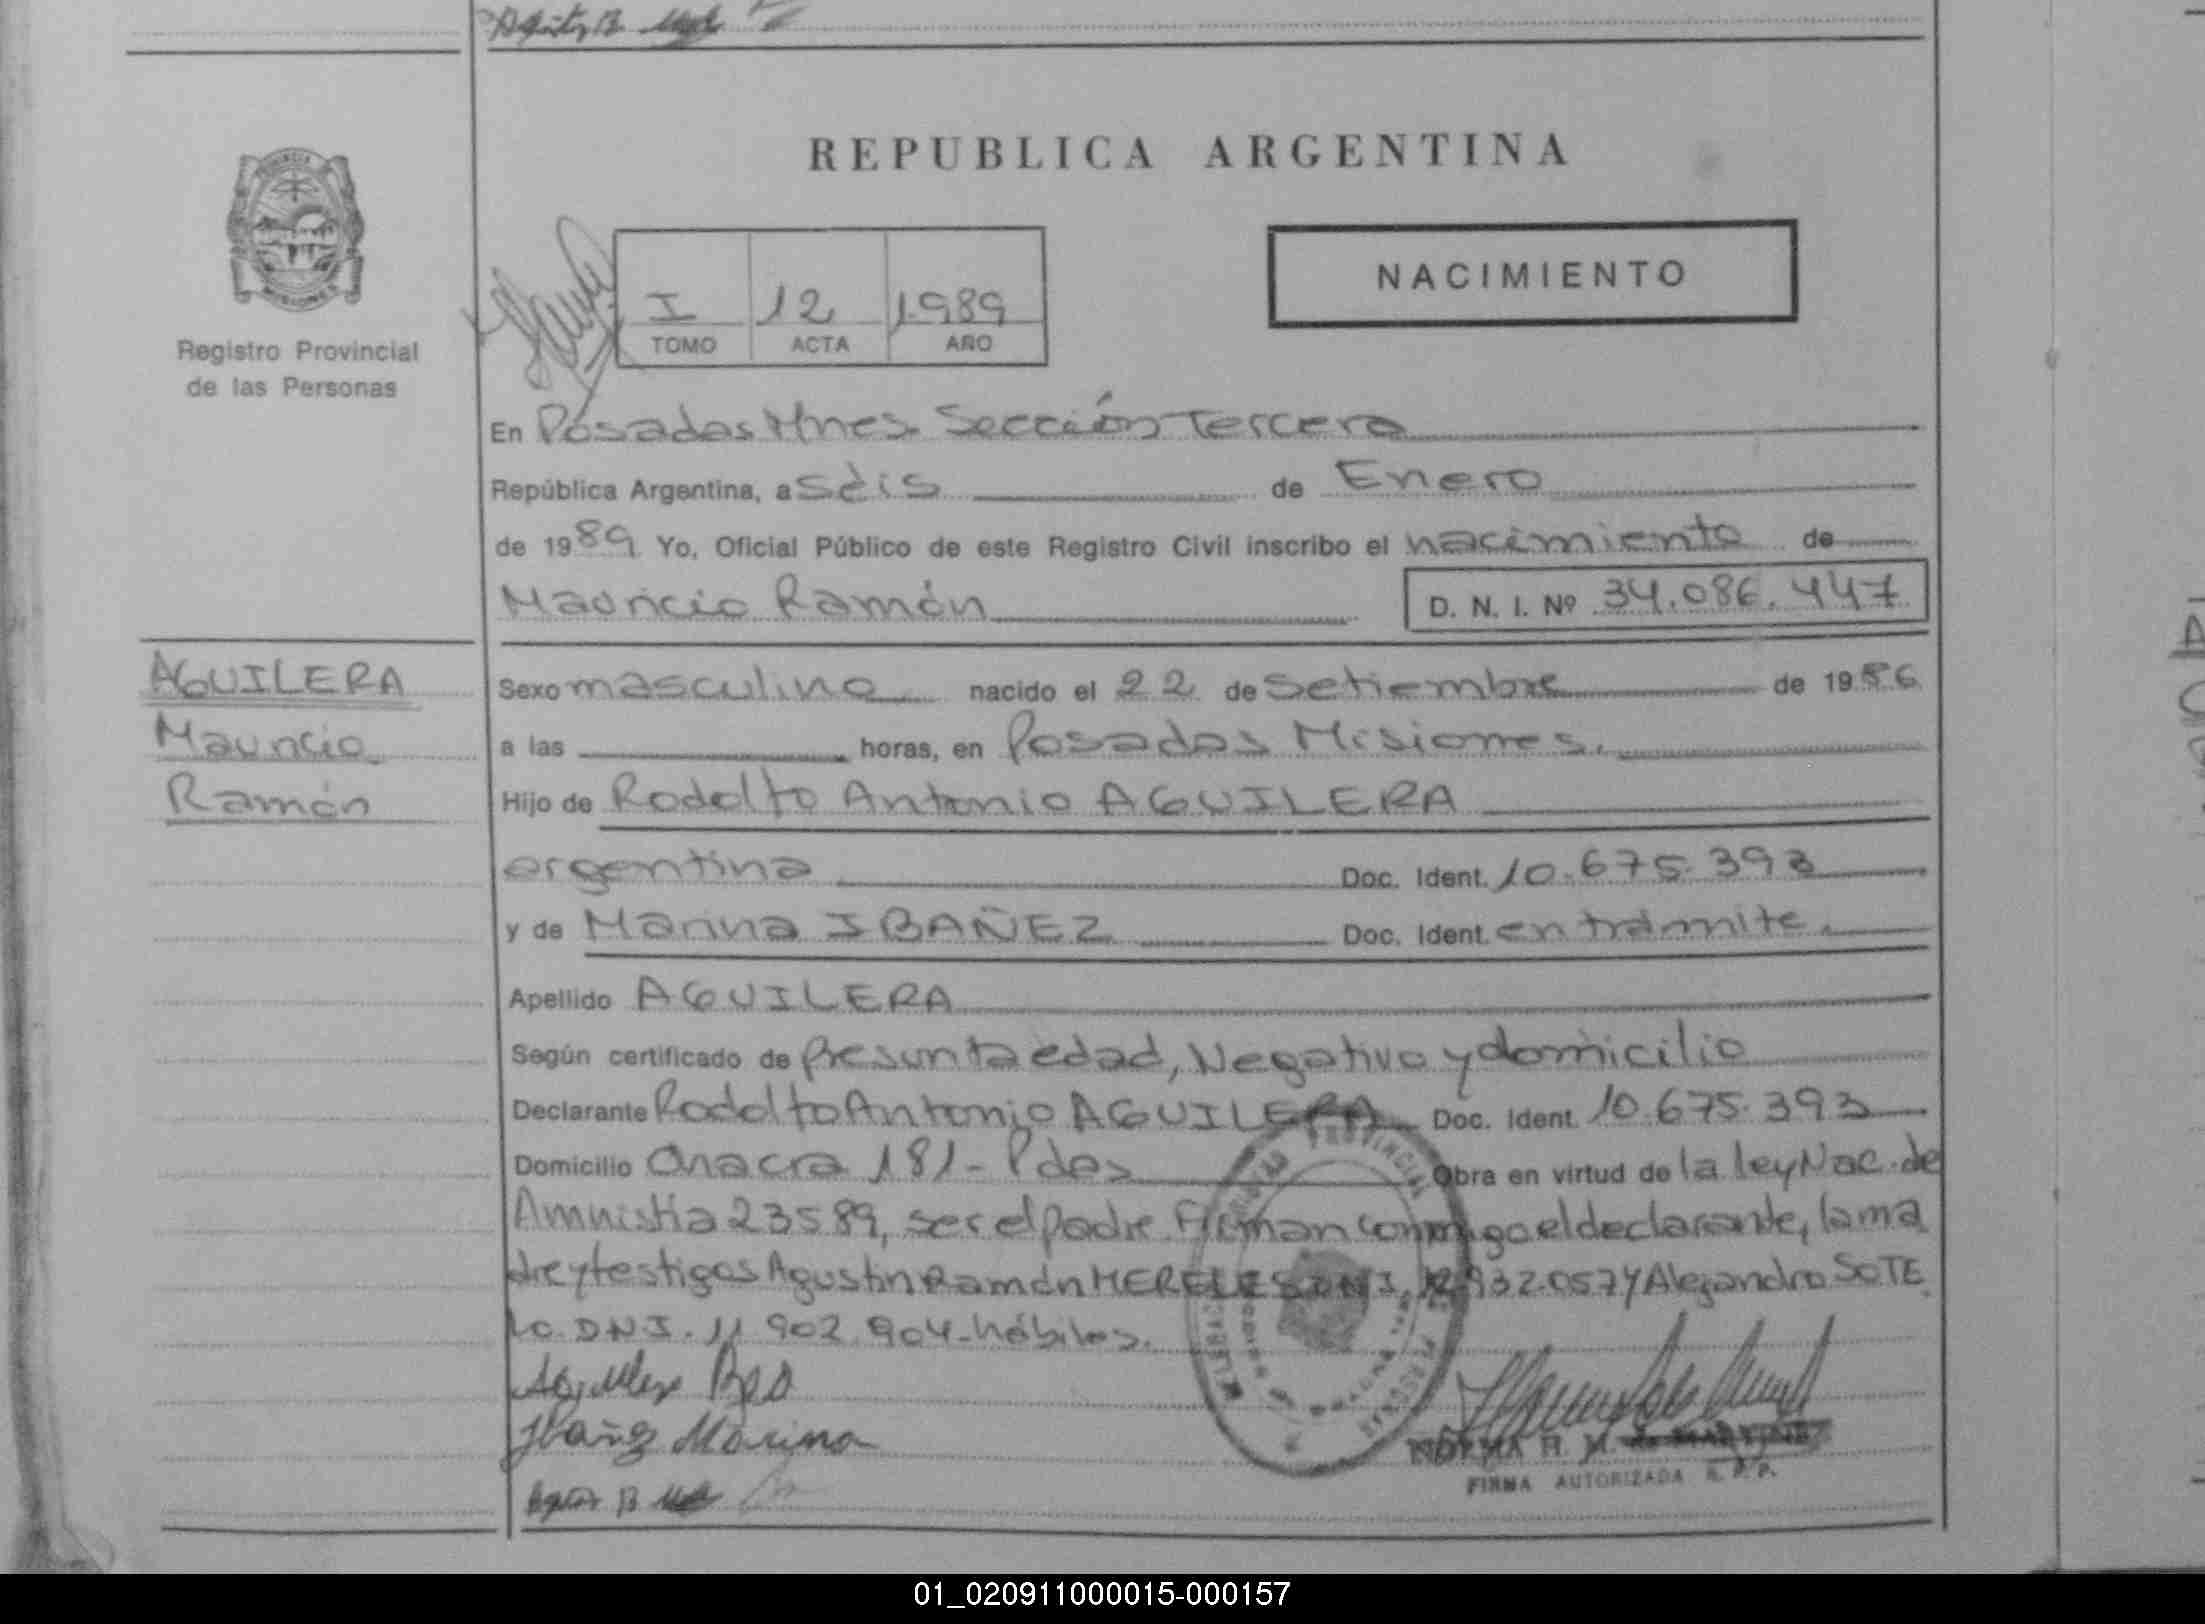 REPUBLICA ARGENTINA
Registro Provincial
de las Personas
I 12 1989
TOMO ACTA AÑO
NACIMIENTO
En Posadas Mnes. Sección Tercera
República Argentina, a Seis de Enero
de 1989 Yo, Oficial Público de este Registro Civil inscribo el nacimiento de
Mauricio Ramón D. N. I. Nº 34.086.447
AGUILERA
Mauricio
Ramón
Sexo masculino nacido el 22 de Setiembre de 1986
a las horas, en Posadas Misiones.
Hijo de Rodolfo Antonio AGUILERA
argentina Doc. Ident. 10.675.393
y de Marina IBAÑEZ Doc. Ident. en trámite.
Apellido AGUILERA
Según certificado de Presunta edad, Negativo y domicilio
Declarante Rodolfo Antonio AGUILERA Doc. Ident. 10.675.393
Domicilio 181- Pdas Obra en virtud de la ley Nac. de
Amnistía 23589, ser el padre. Firman conmigo el declarante, la ma
dre y testigos Agustín Ramón MERELES DNI. 12.932.057 y Alejandro SOTE
LO DNI. 11.902.904- hábiles.
Ibañez Marina
NORMA H. M.
FIRMA AUTORIZADA R. P. P.
01_020911000015-000157